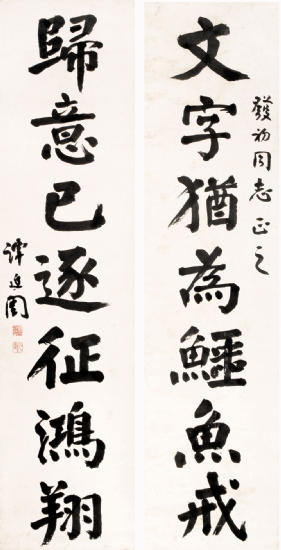 文字猶為鱷魚戒
發初同志正之
歸意已逐征鴻翔
譚延闓